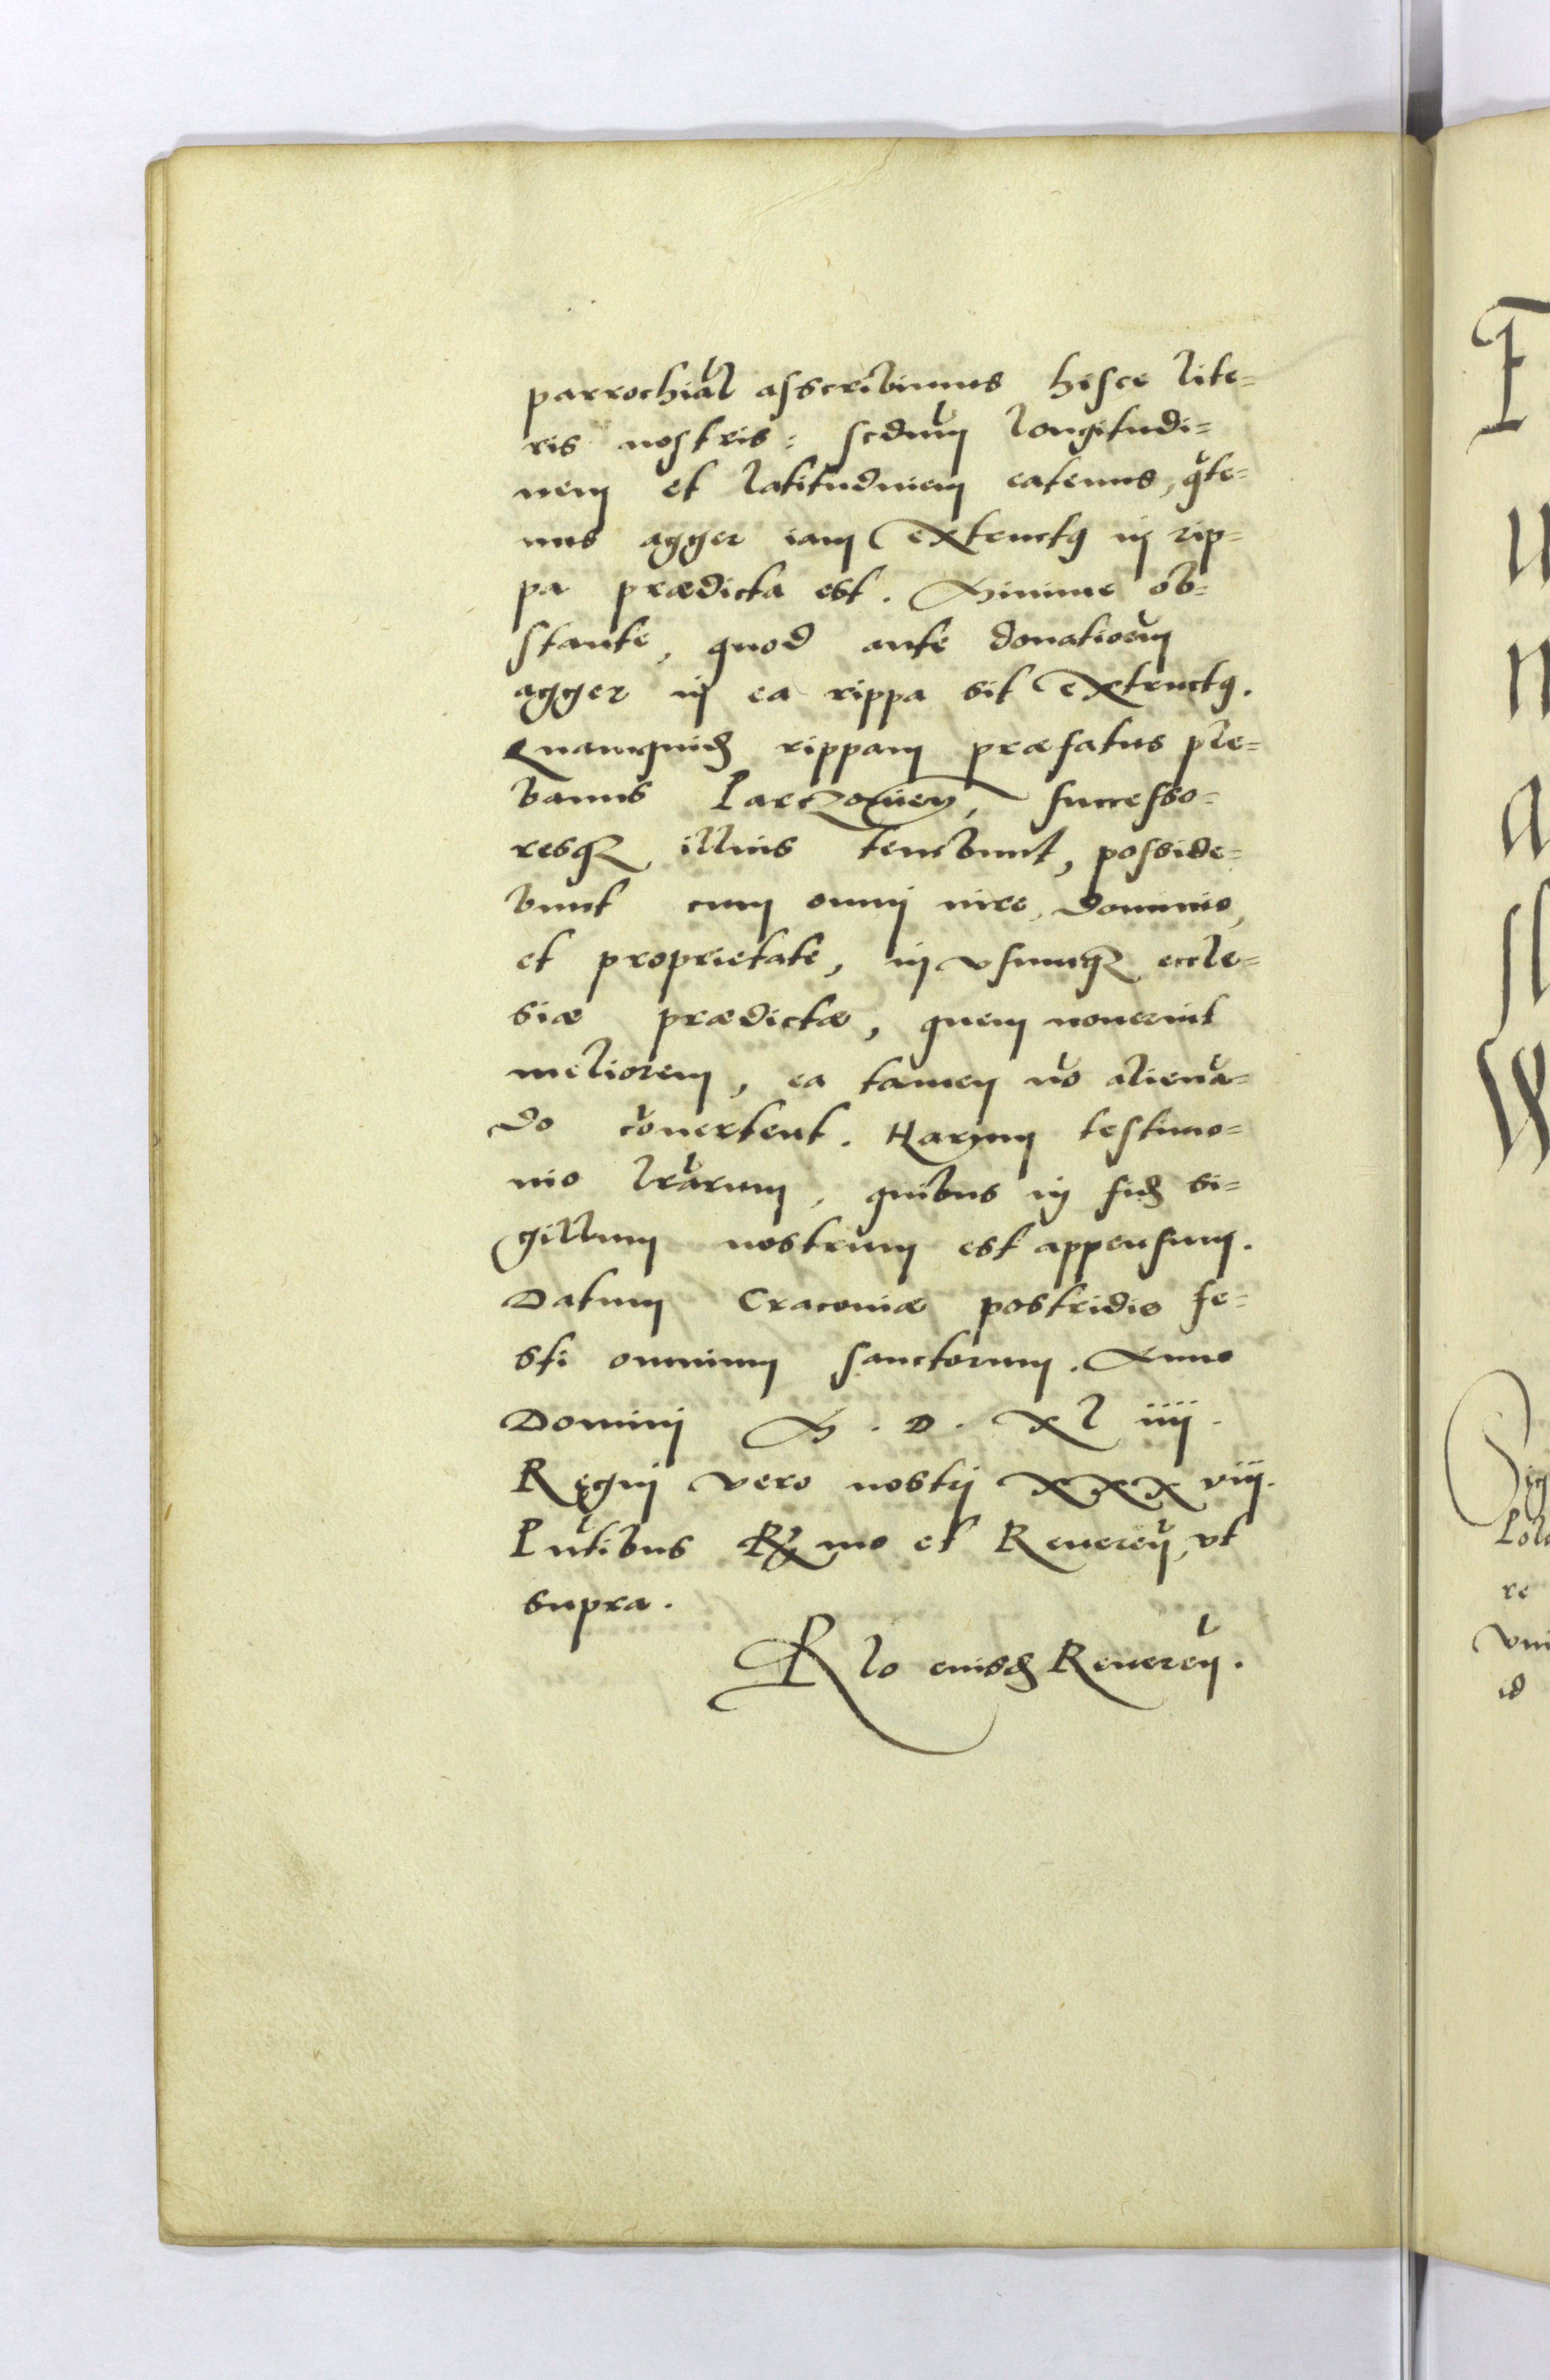 parrochial̃ asscribimus hisce lite=
ris nostris: scdum̃ longitudi=
nem et latitudinem eatenus, q̃te=
nus agger iam extructꝰ in rip=
pa prædicta est. Minime ob=
stante, quod ante donationem̃
agger in ea rippa sit extructꝰ.
Quamquid̃ rippam præfatus ple=
banus Parczowien̄, successo=
resqꝫ illius tenebunt, posside=
bunt cum omni iure, dominio,
et proprietate, in vsumqꝫ eccle=
siæ prædictæ, quem nouerint
meliorem, ea tamen nõ alienã=
do cõnertent. Harum testimo=
nio lr̃arum, quibus in fid̃ si=
gillum nostrum est appensum.
Datum Cracouiæ postridie fe=
sti omnium sanctorum. Anno
Domini M. D. Xl iiij.
Regni vero nostri XXX viij.
Pñtibus Rꝫ mo et Reueren̄, vt
supra.
Rlo eiusd̃ Reueren̄.